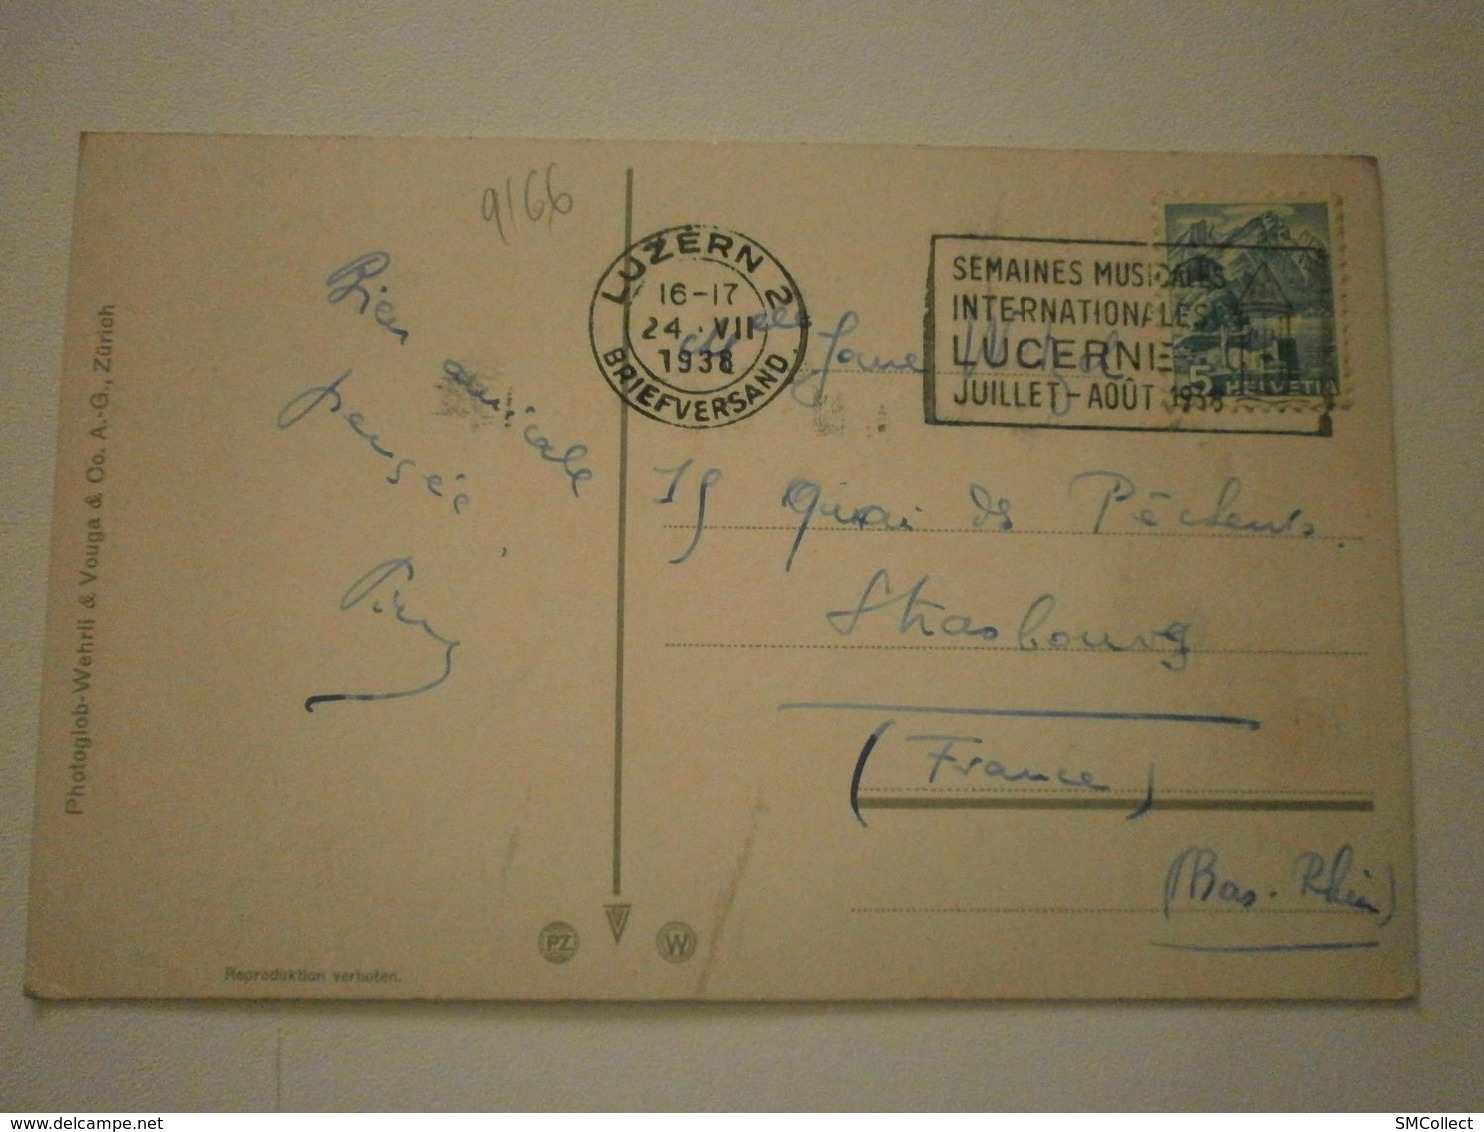 9166
Photoglob-Wehrli & Vouga & Co. A.-G., Zürich
Bien amicale
pensée
LUZERN 2
16-17
24. VII
1938
BRIEFVERSAND
SEMAINES MUSICALES
INTERNATIONALES
LUCERNE
JUILLET-AOÛT 1938
5 HELVETIA
Melle Jane
15 Quai des Pêcheurs.
Strasbourg
(France)
(Bas-Rhin)
PZ
W
Reproduktion verboten.
SMCollect